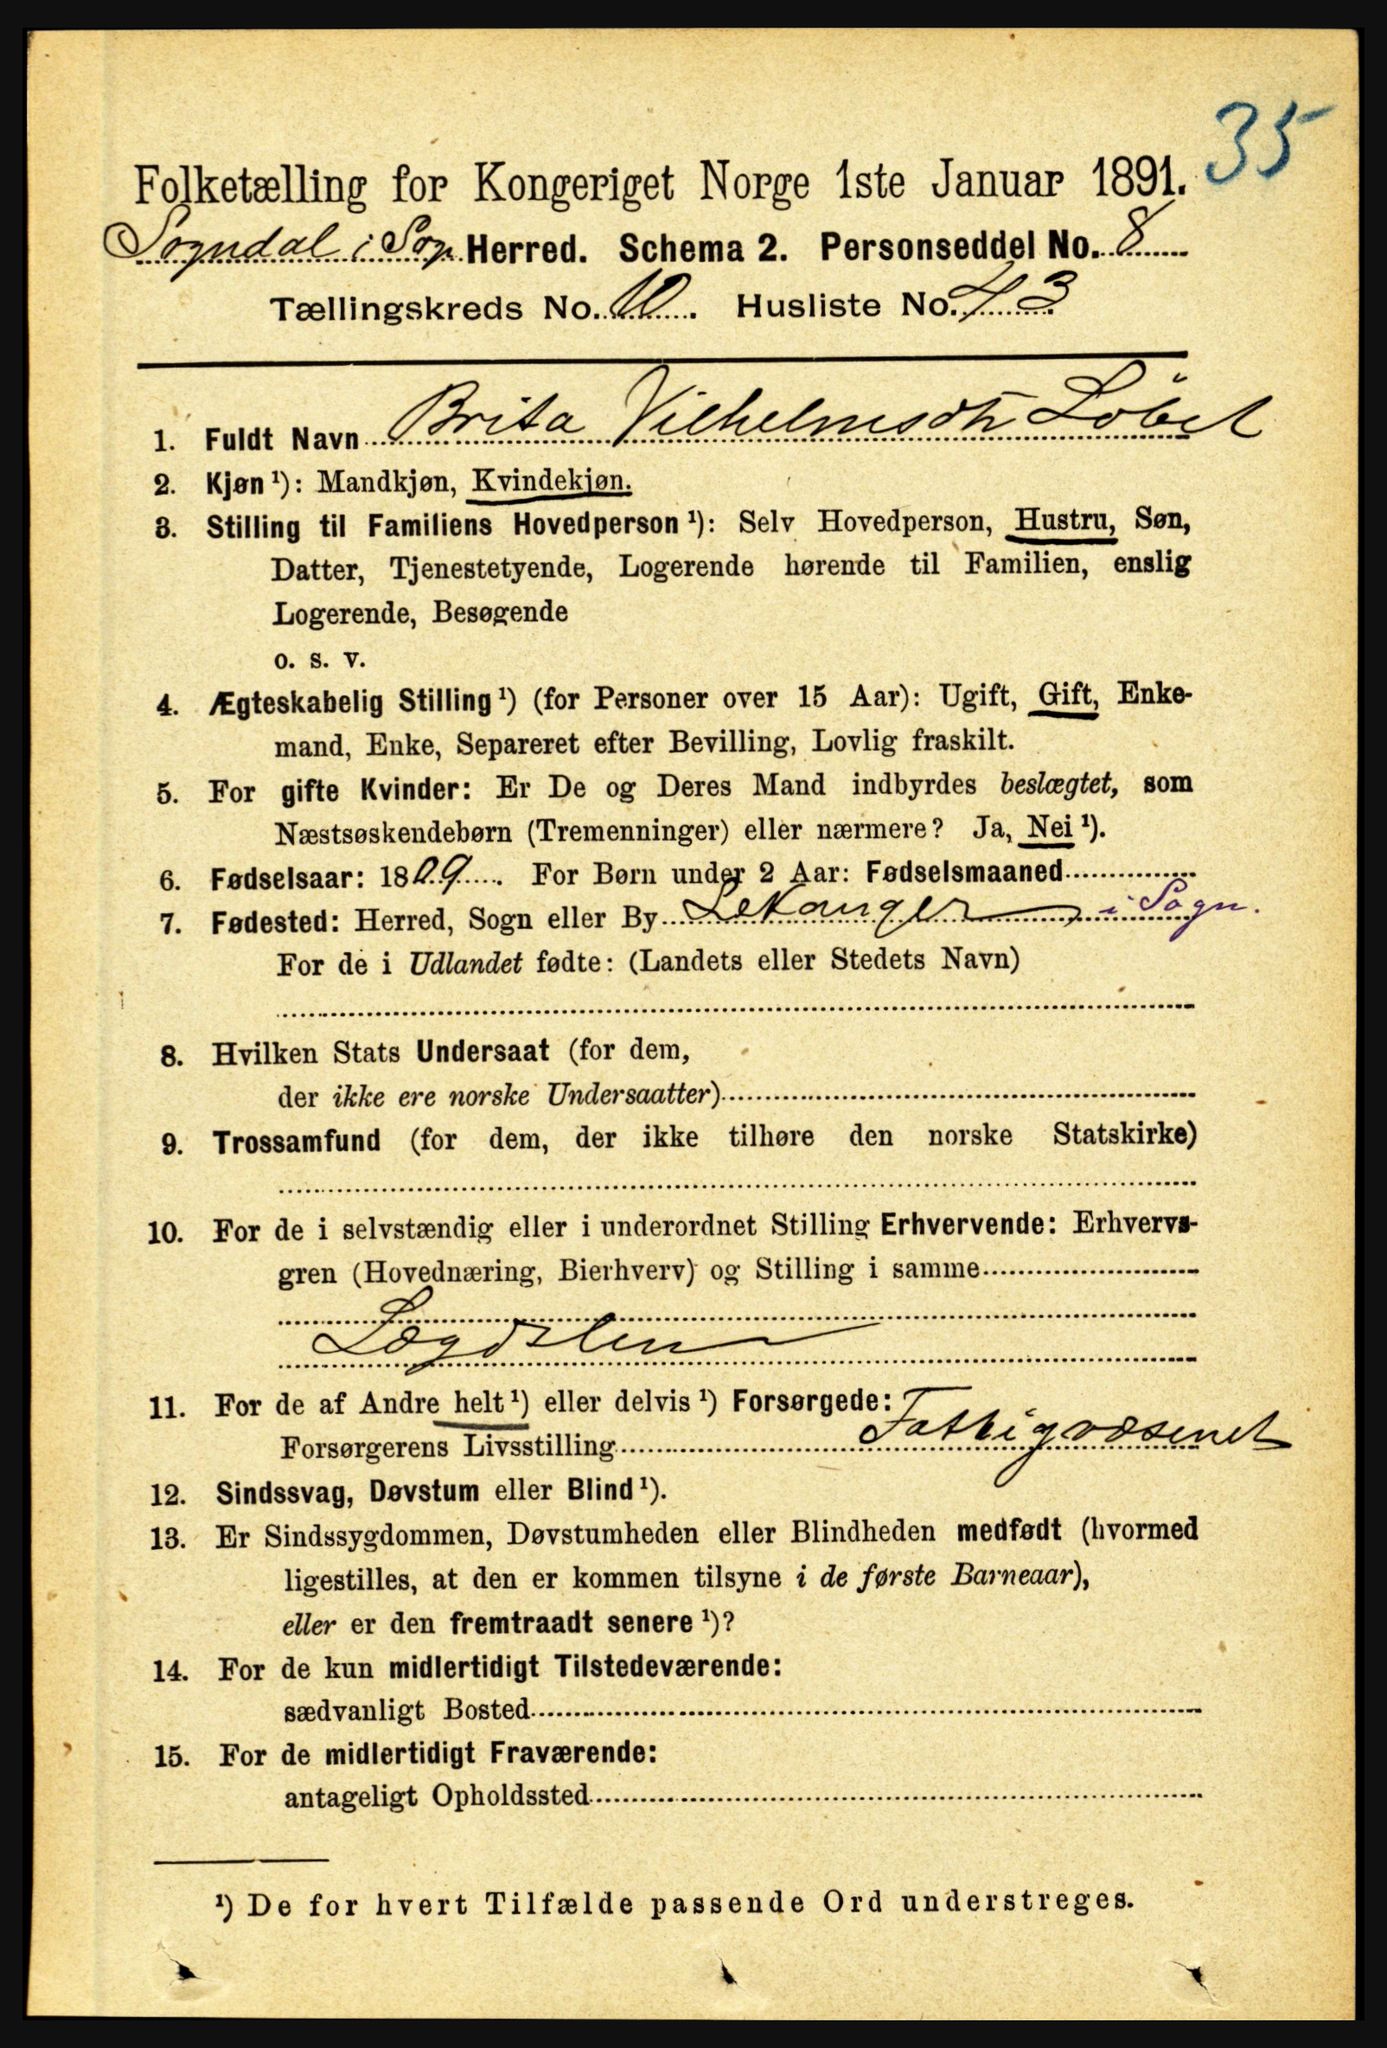 35
Folketælling for Kongeriget Norge 1ste Januar 1891.
Sogndal i Sogn Herred. Schema 2. Personseddel No. 8
Tællingskreds No. 10. Husliste No. 43
1. Fuldt Navn Brita Vilhelmsdtr Løbet
2. Kjøn ¹): Mandkjøn, Kvindekjøn.
3. Stilling til Familiens Hovedperson ¹): Selv Hovedperson, Hustru, Søn,
Datter, Tjenestetyende, Logerende hørende til Familien, enslig
Logerende, Besøgende
o. s. v.
4. Ægteskabelig Stilling ¹) (for Personer over 15 Aar): Ugift, Gift, Enke-
mand, Enke, Separeret efter Bevilling, Lovlig fraskilt.
5. For gifte Kvinder: Er De og Deres Mand indbyrdes beslægtet, som
Næstsøskendebørn (Tremenninger) eller nærmere? Ja, Nei ¹).
6. Fødselsaar: 1809. For Børn under 2 Aar: Fødselsmaaned
7. Fødested: Herred, Sogn eller By Lekanger i Sogn.
For de i Udlandet fødte: (Landets eller Stedets Navn)
8. Hvilken Stats Undersaat (for dem,
der ikke ere norske Undersaatter)
9. Trossamfund (for dem, der ikke tilhøre den norske Statskirke)
10. For de i selvstændig eller i underordnet Stilling Erhvervende: Erhvervs-
gren (Hovednæring, Bierhverv) og Stilling i samme
Lægdslem
11. For de af Andre helt ¹) eller delvis ¹) Forsørgede:
Forsørgerens Livsstilling Fattigvæsenet
12. Sindssvag, Døvstum eller Blind ¹).
13. Er Sindssygdommen, Døvstumheden eller Blindheden medfødt (hvormed
ligestilles, at den er kommen tilsyne i de første Barneaar),
eller er den fremtraadt senere ¹)?
14. For de kun midlertidigt Tilstedeværende:
sædvanligt Bosted
15. For de midlertidigt Fraværende:
antageligt Opholdssted
¹) De for hvert Tilfælde passende Ord understreges.